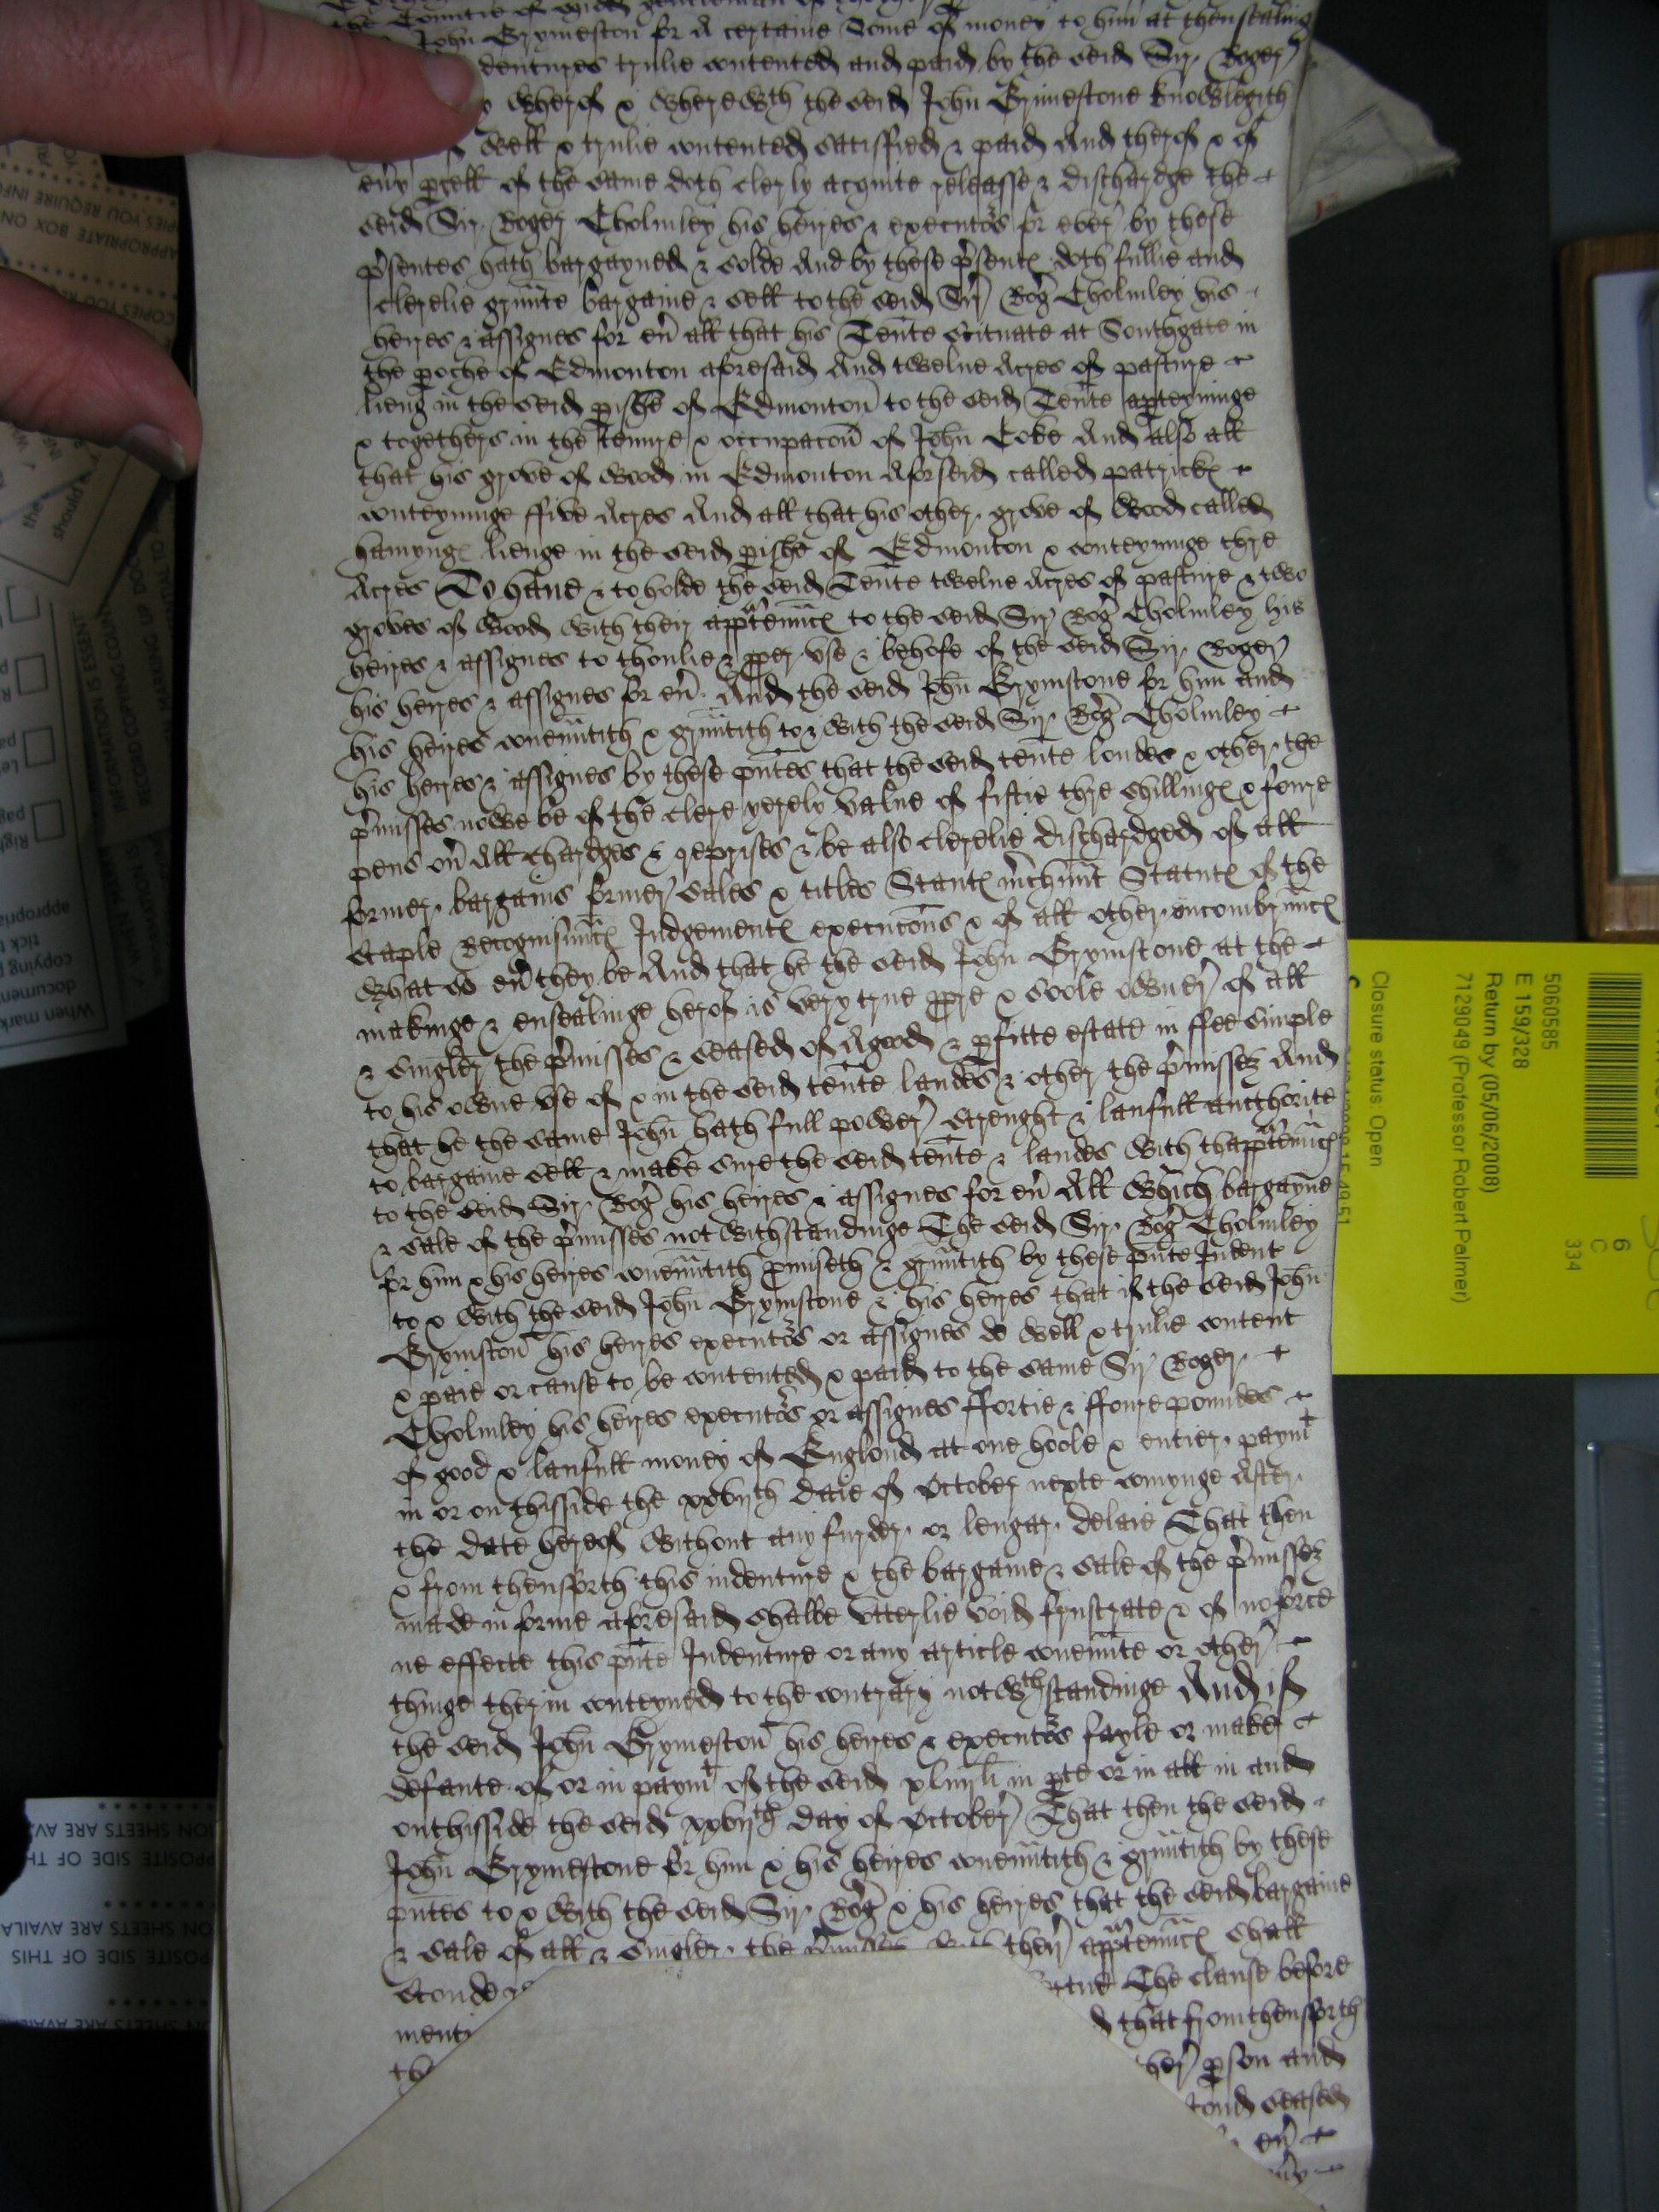 the Countie of
John Grymeston for A certaine Some of money to him at thensealing
dentures trulie contented and paid by the seid Sir Roger
wherof & wherewth the seid John Grimestone knowlegith
well & trulie contented satisfied & paid And therof & of
eny pcell of the same doth clerly acquite releasse & dischardge the
seid Sir Roger Cholmley his heires & executors for ever by these
psentes hath bargayned & solde And by these psentes doth fullie and
clerelie graunte bargaine & sell to the seid Sir Rog Cholmley his
heires & assignes for eu all that his Tente scituate at Southgate in
the poche of Edmonton aforesaid And twelue Acres of pasture
lieng in the seid pishe of Edmonton to the seid Tente apteyninge
& togethers in the tenure & occupacon of John Coke And also all
that his grove of wood in Edmonton Aforseid called patrickes
conteyninge ffive Acres And all that his other grove of wood called
hamynges lienge in the seid pishe of Edmonton & conteyninge thre
Acres To haue & to holde the seid Tente twelue Acres of pasture & two
groves of wood with their apptennces to the seid Sir Rog Cholmley his
heires & assignes to thonlie & pper vse & behofe of the seid Sir Roger
his heires & assignes for eu And the seid John Grymstone for him and
his heires couenntith & grauntith to & with the seid Sir Rog Cholmley
his heires & assignes by these pntes that the seid tente londes & other the
pmisses nowe be of the clere yerely value of fiftie thre shillinges & foure
pens ou All chardges & reprises & be also clerelie dischardged of all
former bargains former sales & titles Statutes mchunt Statutes of the
staple Recognisunces Judgementes execucons & of all other incombrunces
what so eu they be And that he the seid John Grymstone at the
makinge & ensealinge herof is very true ppre & soole owner of all
& singler the pmisses & seased of A good & pfitte estate in ffee simple
to his owne vse of & in the seid tente landes & other the pmisses And
that he the same John hath full power strenght & laufull aucthorite
to bargaine sell & make sure the seid tente & landes with thapptennces
to the seid Sir Rog his heires & assignes for eu All which bargayne
& sale of the pmisses not withstandinge The seid Sir Rog Cholmley
for him & his heires couenntith pmiseth & grauntith by these pnte Indent
to & with the seid John Grymstone & his heires that if the seid John
Grymston his heires executors or assignes do well & trulie content
& paie or cause to be contented & paid to the same Sir Roger
Cholmley his heires executors or assignes ffortie & ffoure poundes
of good & laufull money of Englond at one hoole & entier paymt
in or on thisside the xxviith daie of October nexte comynge After
the date hereof without any furder or lengar delaie That then
& from thensforth this indenture & the bargaine & sale of the pmisses
made in forme aforesaid shalbe vtterlie void frustrate & of no force
ne effecte this pnte Indenture or any article couennte or other
thinge therin conteyned to the contrary notwthstandinge And if
the seid John Grymeston his heires & executors fayle or make
defaute of or in paymt of the seid xliiijli in pte or in all in and
onthisside the seid xxviith day of October That then the seid
John Grymestone for him & his heires couenntith & grauntith by these
pntes to & with the seid Sir Rog & his heires that the seid bargaine
& sale of all & singler the pmisses with their apptennces shall
stonde The clause before
menti that from thensforth
the her pson and
seased
eu
5060585
E 159/328
Return by (05/06/2008)
7129049 (Professor Robert Palmer)
Closure status: Open
6
C
334